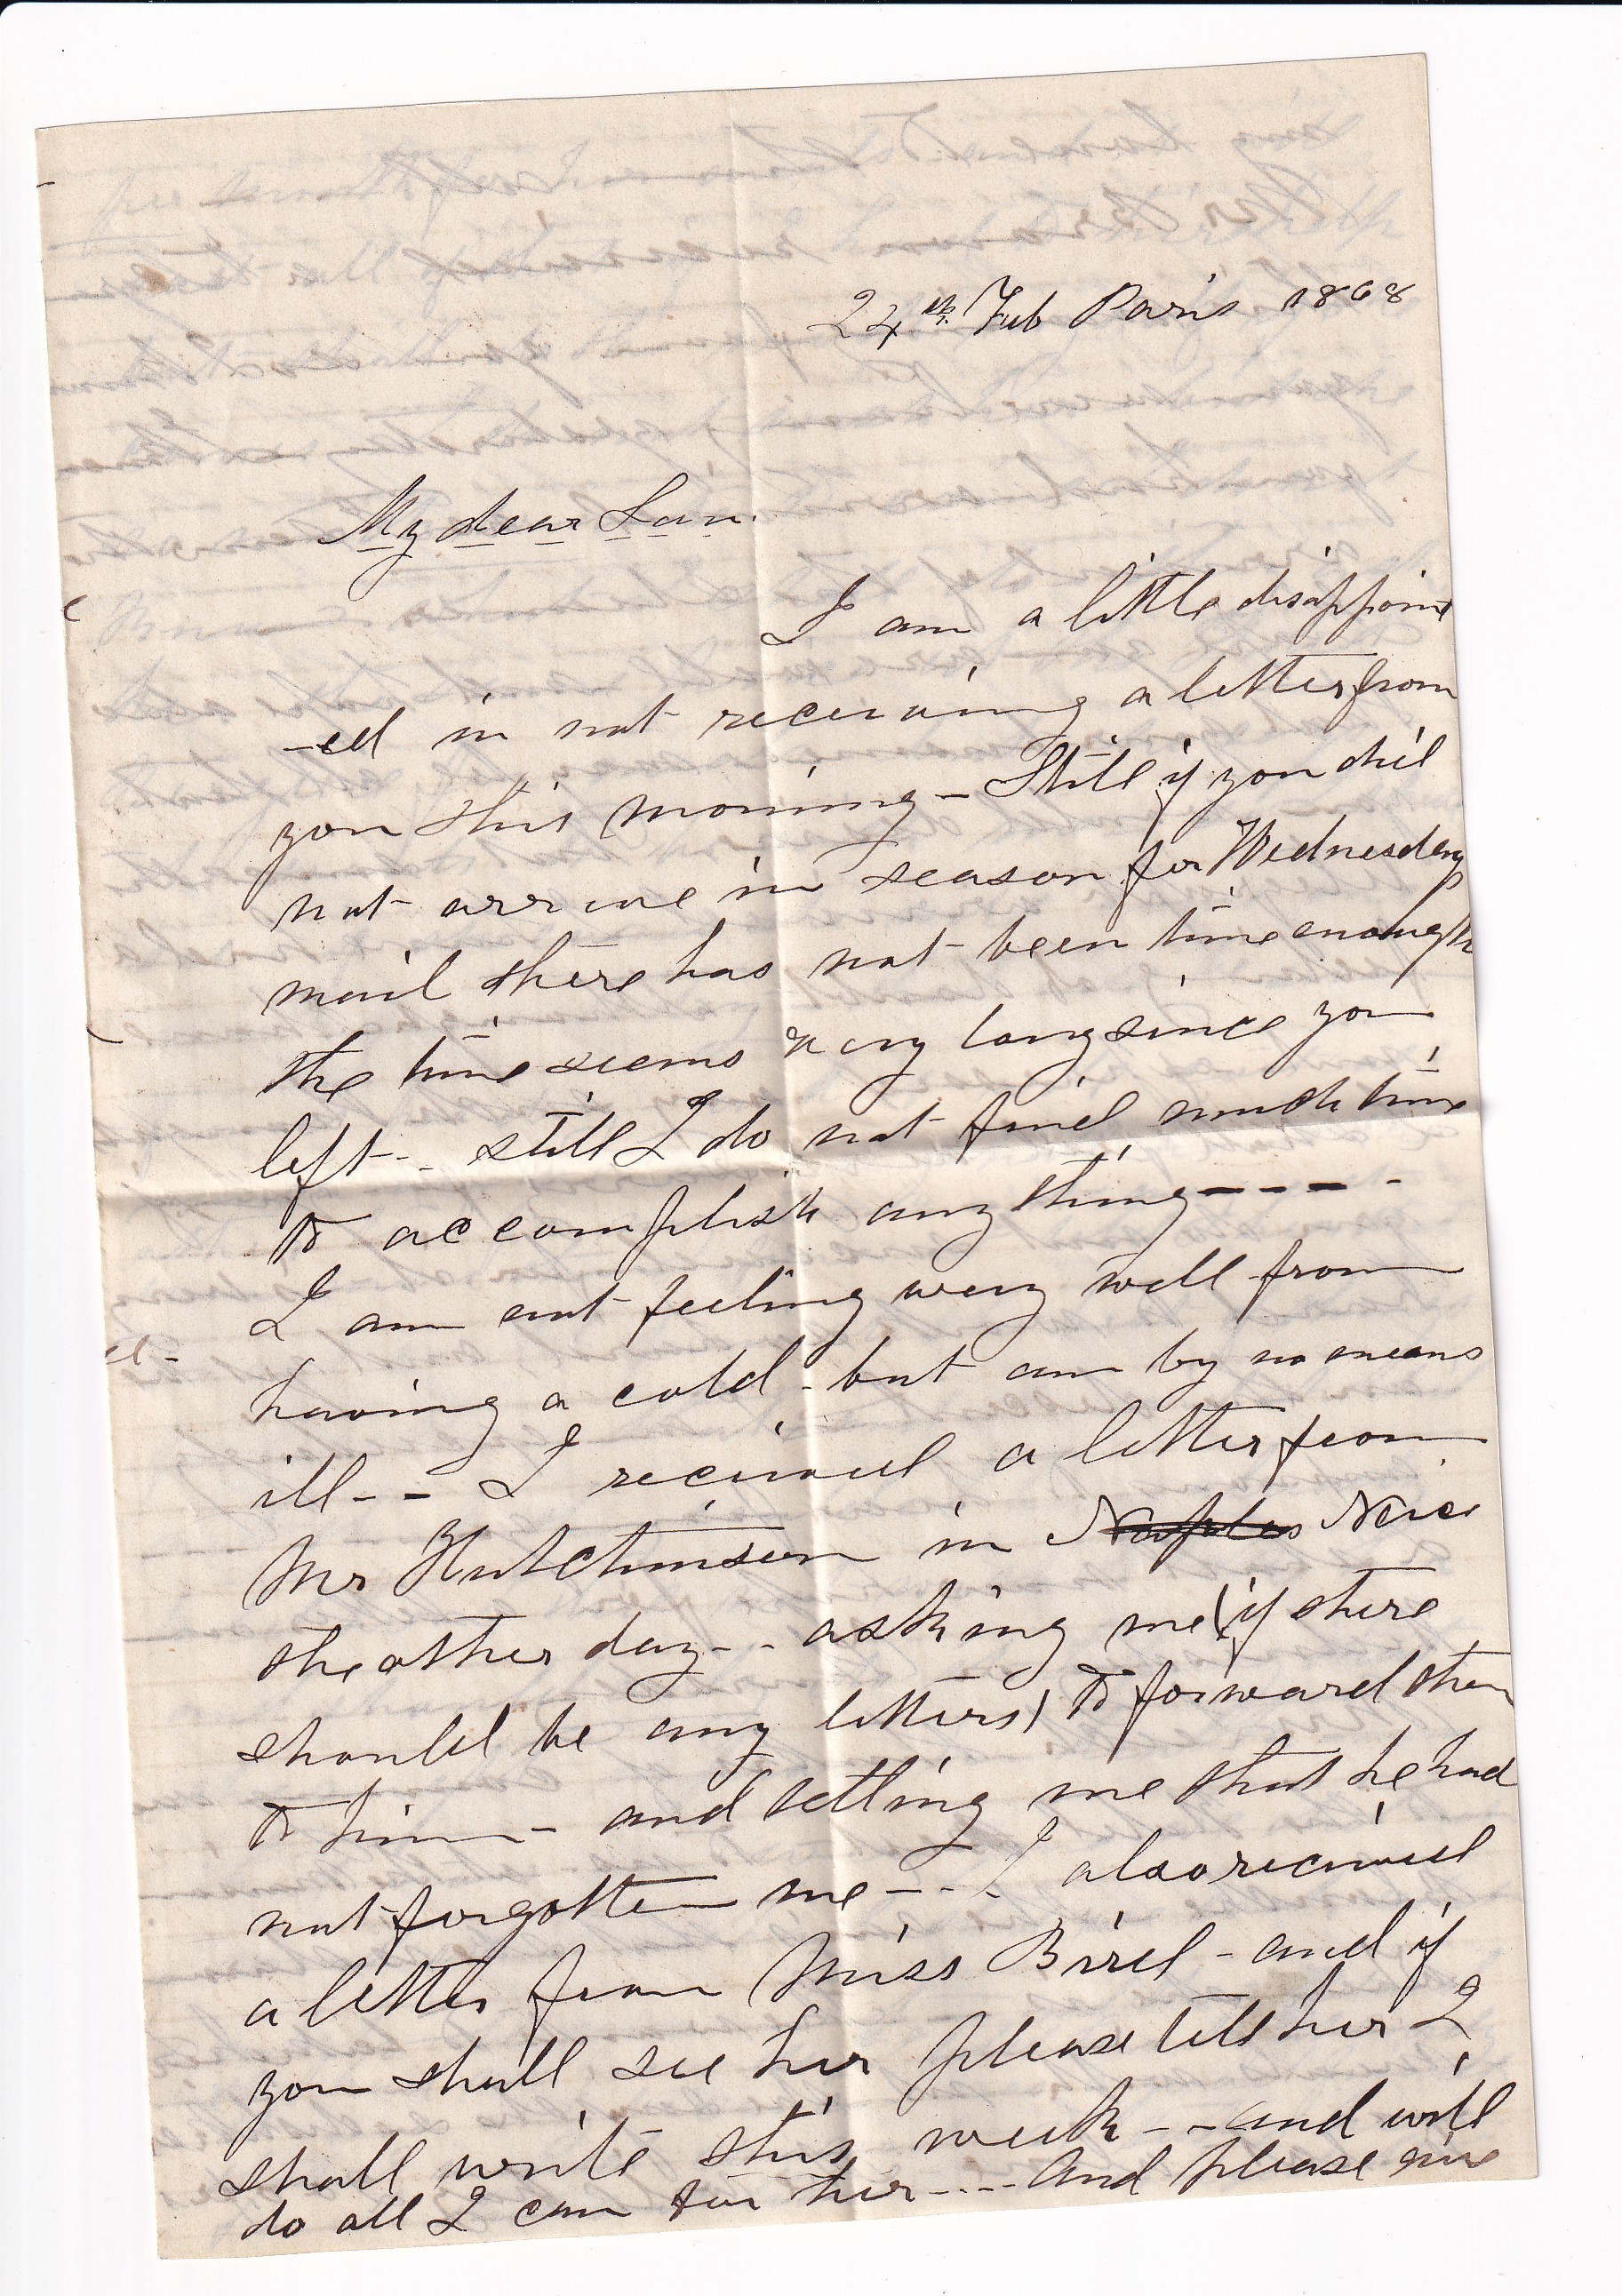 24th Feb Paris 1868
My dear Lau.
I am a little disappoint
-ed in not receiving a letter from
you this morning - Still if you did
not arrive in season for Wednesday
mail there has not been time enough
the time seems very long since you
left - still I do not find much time
to accomplish anything - - - -
I am not feeling very well from
having a cold - but am by no means
ill - - I received a letter from
Mr Hutchinson in Naples Nice
the other day - - asking me (if there
should be any letters) to forward them
to him - and telling me that he had
not forgotten me - - - I also received
a letter from Miss Bird - and if
you shall see her please tell her I
shall write this week - - and will
do all I can for her - - - - and please give